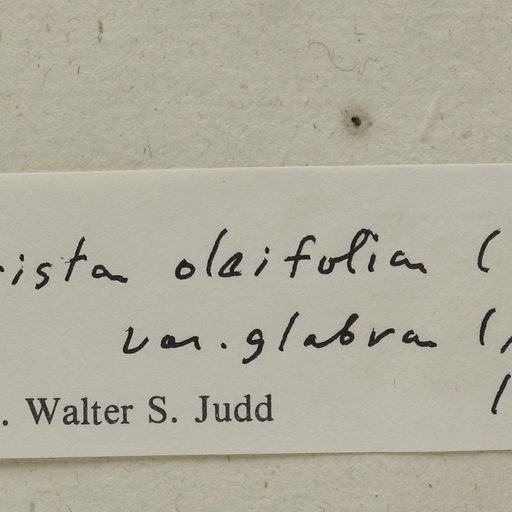 ista oleifolia (
var. glabra (
. Walter S. Judd (